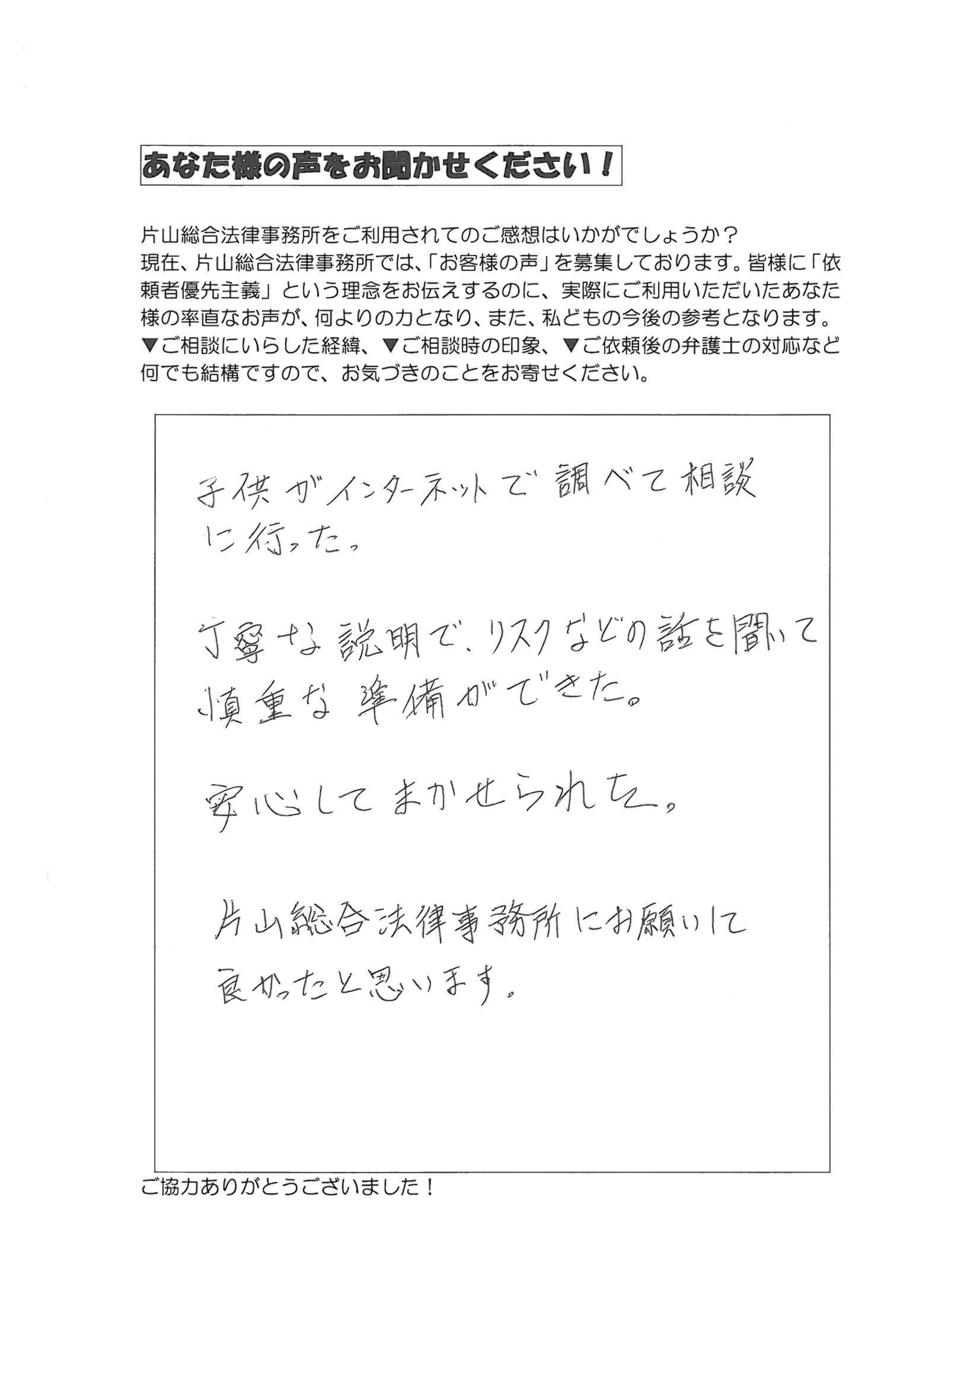 あなた様の声をお聞かせください！
片山総合法律事務所をご利用されてのご感想はいかがでしょうか？
現在、片山総合法律事務所では、「お客様の声」を募集しております。皆様に「依
頼者優先主義」という理念をお伝えするのに、実際にご利用いただいたあなた
様の率直なお声が、何よりの力となり、また、私どもの今後の参考となります。
▼ご相談にいらした経緯、▼ご相談時の印象、▼ご依頼後の弁護士の対応など
何でも結構ですので、お気づきのことをお寄せください。
子供がインターネットで調べて相談
に行った。
丁寧な説明で、リスクなどの話を聞いて
慎重な準備ができた。
安心してまかせられた。
片山総合法律事務所にお願いして
良かったと思います。
ご協力ありがとうございました！